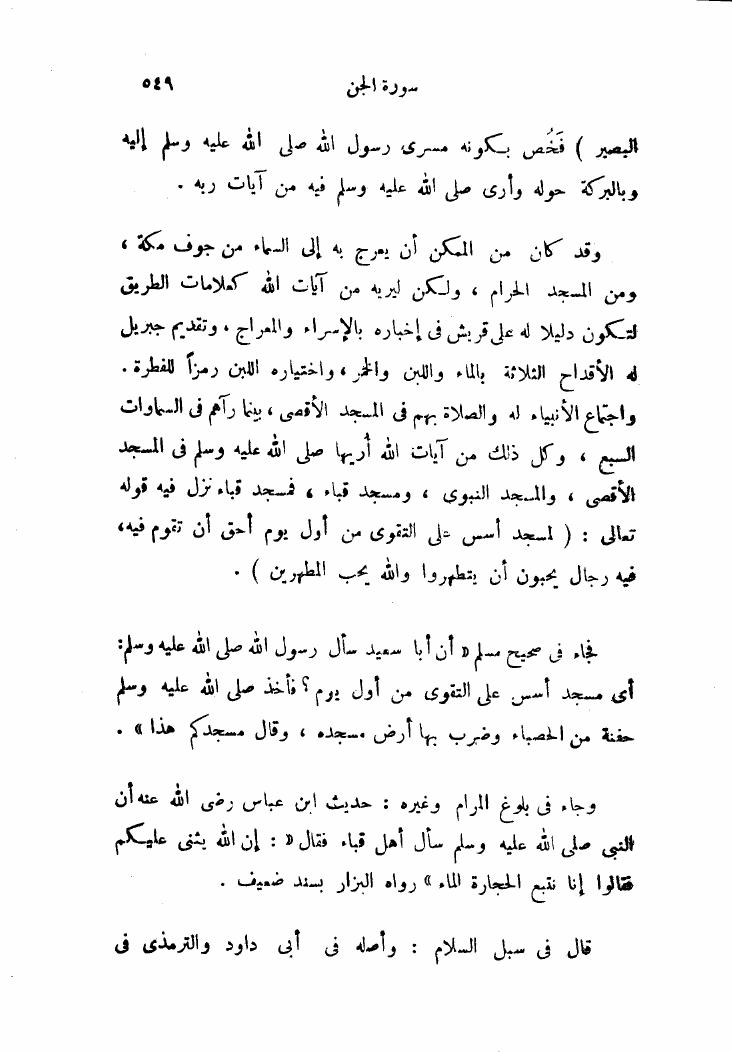 سورة الجن ٥٤٩
البصير ) فَخُص بكونه مسرى رسول الله صلى الله عليه وسلم إليه
وبالبركة حوله وأرى صلى الله عليه وسلم فيه من آيات ربه .
وقد كان من الممكن أن يعرج به إلى السماء من جوف مكة ،
ومن المسجد الحرام ، ولكن ليريه من آيات الله كعلامات الطريق
لتكون دليلا له على قريش فى إخباره بالإسراء والمعراج ، وتقديم جبريل
له الأقداح الثلاثة بالماء واللبن والخمر ، واختياره اللبن رمزاً للفطرة .
واجتماع الأنبياء له والصلاة بهم فى المسجد الأقصى ، بينما رآهم فى السماوات
السبع ، وكل ذلك من آيات الله أُريها صلى الله عليه وسلم فى المسجد
الأقصى ، والمسجد النبوى ، ومسجد قباء ، فمسجد قباء نزل فيه قوله
تعالى : ( لمسجد أسس على التقوى من أول يوم أحق أن تقوم فيه ،
فيه رجال يحبون أن يتطهروا والله يحب المطهرين ) .
فجاء فى صحيح مسلم « أن أبا سعيد سأل رسول الله صلى الله عليه وسلم :
أى مسجد أسس على التقوى من أول يوم ؟ فأخذ صلى الله عليه وسلم
حفنة من الحصباء وضرب بها أرض مسجده ، وقال مسجدكم هذا » .
وجاء فى بلوغ المرام وغيره : حديث ابن عباس رضى الله عنه أن
النبى صلى الله عليه وسلم سأل أهل قباء فقال « : إن الله يثنى عليكم
فقالوا إنا نتبع الحجارة الماء » رواه البزار بسند ضعيف .
قال فى سبل السلام : وأصله فى أبى داود والترمذى فى